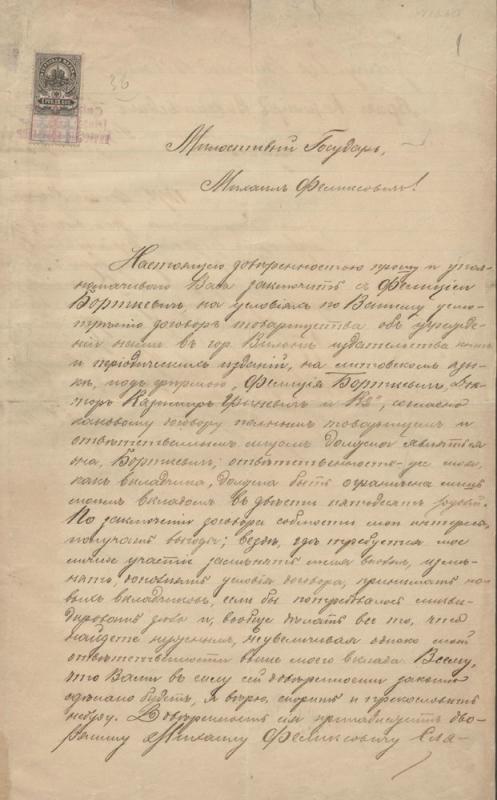 36
1
Милостивый Государь,
Михаилъ Феликсовичъ!
Настоящею довѣренностью прошу и упол-
номачиваю Васъ заключить съ Фелиціей
Борткевичъ, на условіяхъ по Вашему усмо-
трѣнію договоръ товарищества объ учрежде-
ніи нами въ гор. Вильнѣ издательства книгъ
и періодическихъ изданій, на литовскомъ язы-
кѣ, подъ фирмою „Фелиція Борткевичъ, Док-
торъ Казиміръ Гриневичъ и К°", согласно
каковому договору полнымъ товарищемъ и
отвѣтственнымъ лицомъ должна являться
она, Борткевичъ; отвѣтственность-же моя,
какъ вкладчика, должна быть ограничена лишь
моимъ вкладомъ въ двѣсти пятьдесятъ рублей.
По заключеніи договора соблюсти мои интересы,
получать выгоды; вездѣ, гдѣ требуется мое
личное участіе замѣнять меня вполнѣ, измѣ-
нять, дополнять условія договора, принимать но-
выхъ вкладчиковъ, если бы потребовалось ликви-
дировать дѣло и, вообще дѣлать все то, что
найдете нужнымъ, не увеличивая однако моей
отвѣтственности выше моего вклада. Всему,
что Вами въ силу сей довѣренности законно
сдѣлано будетъ, я вѣрю, спорить и прекословить
небуду. Довѣренность сія принадлежитъ дво-
рянину Михаилу Феликсовичу Сла-